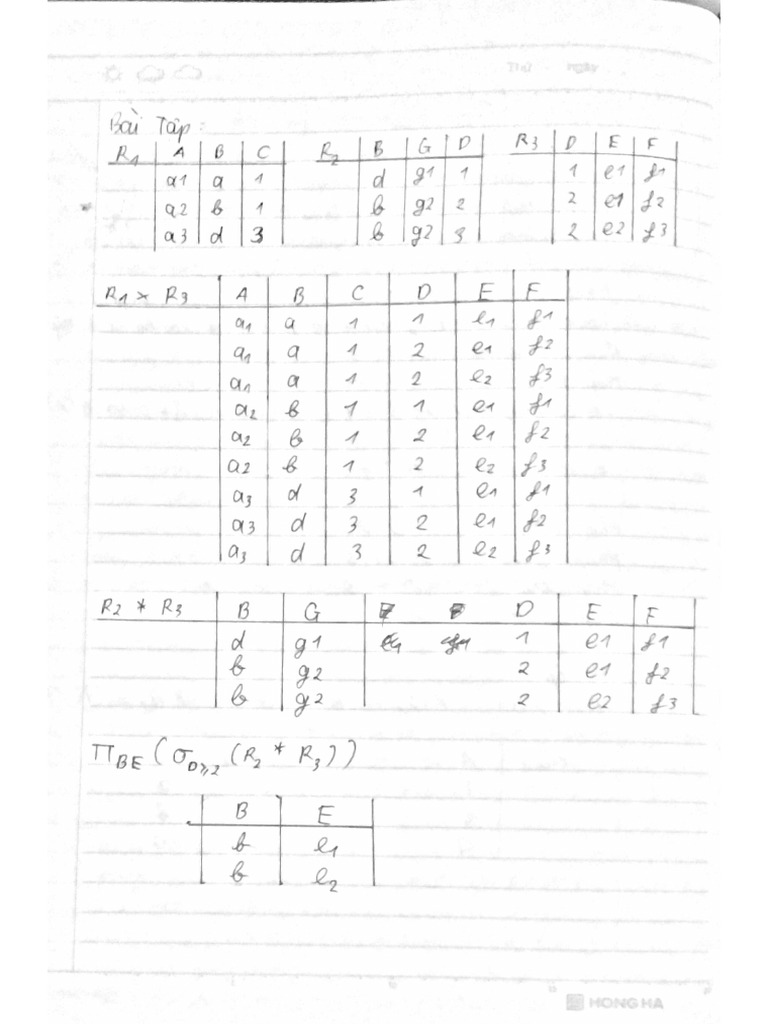 Thứ ngày
Bài Tập:
R1 A B C R2 B G D R3 D E F
a1 a 1 d g1 1 1 e1 f1
a2 b 1 b g2 2 2 e1 f2
a3 d 3 b g2 3 2 e2 f3
R1 × R3 A B C D E F
a1 a 1 1 e1 f1
a1 a 1 2 e1 f2
a1 a 1 2 e2 f3
a2 b 1 1 e1 f1
a2 b 1 2 e1 f2
a2 b 1 2 e2 f3
a3 d 3 1 e1 f1
a3 d 3 2 e1 f2
a3 d 3 2 e2 f3
R2 * R3 B G D E F
d g1 1 e1 f1
b g2 2 e1 f2
b g2 2 e2 f3
ΠBE (σD≥2 (R2 * R3))
B E
b e1
b e2
HONG HA